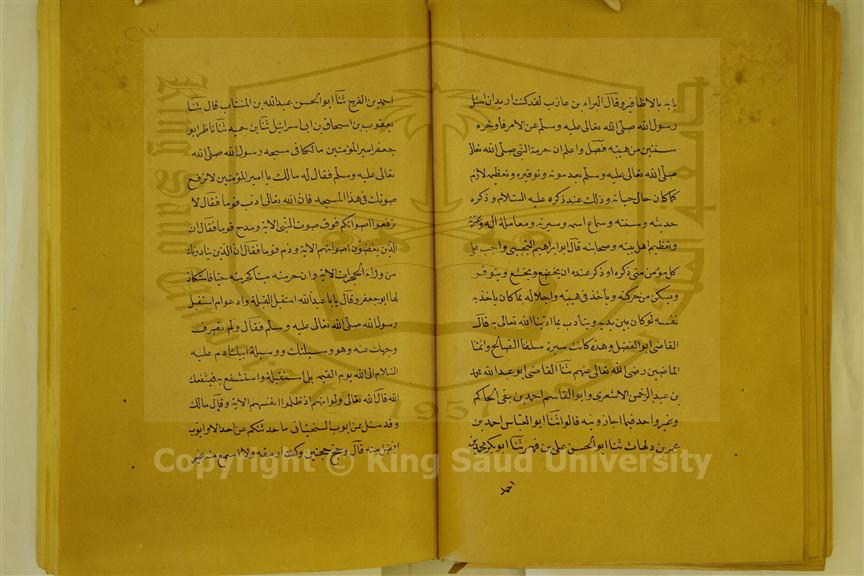 بابه بالاظافير وقال البراء بن عازب لقد كنت اريد ان اسئل
رسول الله صلى الله تعالى عليه وسلم عن الامر فاوخره
سنين من هيبته فصل واعلم ان حرمة النبي صلى الله تعالى
صلى الله تعالى عليه وسلم بعد موته وتوقيره وتعظيمه لازم
كما كان حال حياته وذلك عند ذكره عليه السلام وذكره
حديثه وسنته وسماع اسمه وسيرته ومعاملة اله وعترته
وتعظيم اهل بيته وصحابته قال ابو ابراهيم التجيبي واجب على
كل مؤمن متى ذكره او ذكر عنده ان يخضع ويخشع ويتوقر
ويسكن من حركته وياخذ في هيبته واجلاله بما كان ياخذ به
نفسه لو كان بين يديه ويتادب بما ادبنا الله تعالى به قال
القاضي ابو الفضل وهذه كانت سيرة سلفنا الصالح وائمتنا
الماضين رضى الله تعالى عنهم ثنا القاضي ابو عبد الله محمد
بن عبد الرحمن الاشعرى وابو القاسم احمد بن بقى الحاكم
وغير واحد فيما اجازونيه قالوا انبا ابو العباس احمد بن
عمر بن دلهاث ثنا ابو الحسن على بن فهر ثنا ابو بكر محمد بن
احمد
احمد بن الفرج ثنا ابو الحسن عبد الله بن المنتاب قال ثنا
يعقوب بن اسحاق بن ابى اسرائيل ثنا بن حميد ثنا ناظر ابو
جعفر امير المؤمنين مالكا فى مسجد رسول الله صلى الله
تعالى عليه وسلم فقال له مالك يا امير المؤمنين لا ترفع
صوتك فى هذا المسجد فان الله تعالى ادب قوما فقال لا
ترفعوا اصواتكم فوق صوت النبى الاية ومدح قوما فقال ان
الذين يغضون اصواتهم الاية وذم قوما فقال ان الذين ينادونك
من وراء الحجرات الاية وان حرمته ميتا كحرمته حيا فاستكان
لها ابو جعفر وقال يا با عبد الله استقبل القبلة وادعو ام استقبل
رسول الله صلى الله تعالى عليه وسلم فقال ولم تصرف
وجهك عنه وهو وسيلتك ووسيلة ابيك ادم عليه
السلام الى الله يوم القيمة بل استقبله واستشفع به فيشفعك
الله قال الله تعالى ولو انهم اذ ظلموا انفسهم الاية وقال مالك
وقد سئل عن ايوب السختيانى ما حدثتكم عن احد الا وايوب
افضل منه قال وحج حجتين وكنت ارمقه ولا اسمع منه غير
Copyright © King Saud University
1957